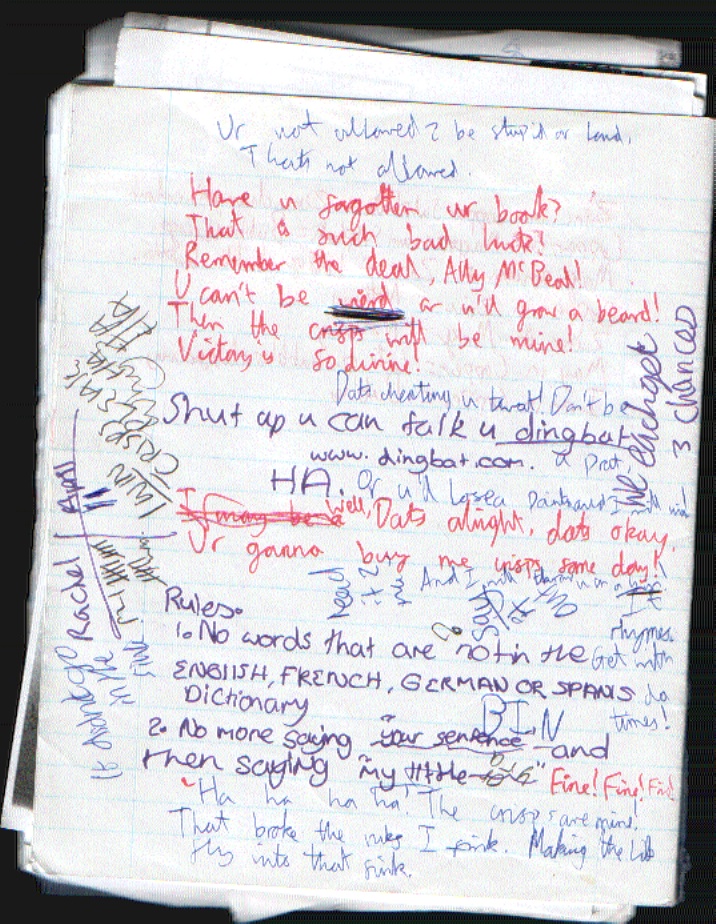 Ur not allowed 2 be stupid or loud,
Thats not allowed.
Have u forgotten ur book?
That is such bad luck!
Remember the deal, Ally McBeal!
U can't be nerd or u'll grow a beard!
Then the crisps will be mine!
Victory is so divine!
Dats cheating u twat! Don't be
Shut up u can talk u dingbat
www. dingbat.com. a prat,
HA. Or u'd lose a point and I will
I may be a Well, Dats alright, dats okay,
Ur gonna buy me crisps some day!
And I will
read it 2 me
say
It rhymes.
Get with da times!
We each get 3 chances
I WIN
CRISPS
HA HA
Rachel
April
in the sink.
Rules:
1. No words that are not in the
ENGLISH, FRENCH, GERMAN OR SPANIS
Dictionary
BIN
2. No more saying "your sentence" and
then saying "my title" Fine! Fine! Fin
"Ha ha ha ha! The crisps are mine!
That broke the rules I fink. Making the
fly into that sink.